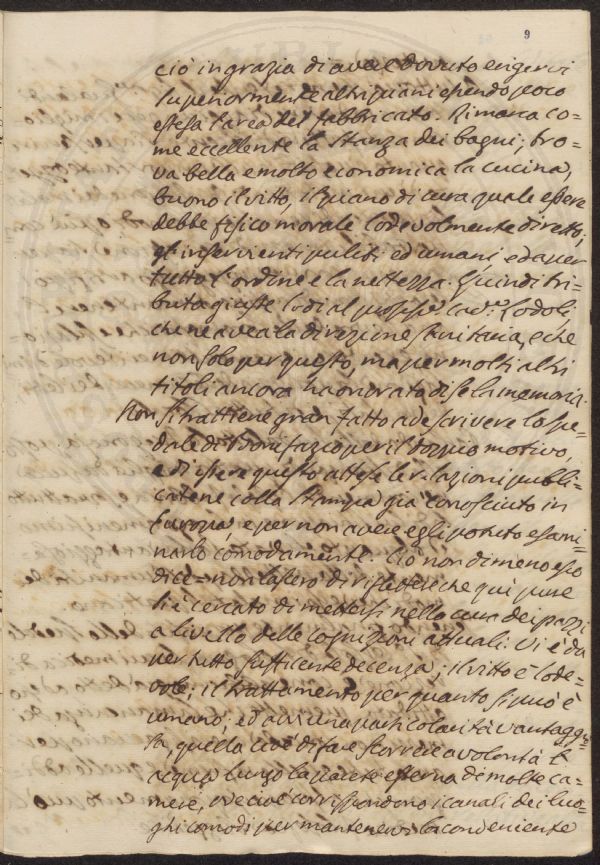 9
ciò in grazia di aver dovuto erigervi
superiormente altri piani essendo poco
estesa l'area del fabbricato. Rimarca co-
me eccellente la Stanza dei bagni; tro-
va bella e molto economica la cucina,
buono il vitto, il piano di cura quale essere
debbe fisico morale lodevolmente diretto;
gl'inservienti puliti ed umani, e da per
tutto l'ordine e la nettezza. Quindi tri-
buta giuste lodi al Cav.r Lodoli,
che ne avea la direzione sanitaria, e che
non solo per questo, ma per molti altri
titoli ancora ha onorato di se la memoria.
Non si trattiene gran fatto a descrivere lo spe-
dale di Bonifazio per il doppio motivo,
e di essere questo attese le relazioni pubbli-
catene colla Stampa già conosciuto in
Europa, e per non avere egli potuto esami-
narlo comodamente. Ciò non di meno esso
dice = non lascerò di riflettere che quì pure
si è cercato di mettersi nella cura dei pazzi
a livello delle cognizioni attuali. Vi è da
per tutto sufficente decenza; il vitto è lode-
vole; il trattamento per quanto si può è
umano: ed avvi una particolarità vantaggio-
sa, quella cioè di fare scorrere a volontà l'
acqua lungo la parete esterna di molte ca-
mere, ove cioè corrispondono i canali dei luo-
ghi comodi per mantenervi la conveniente